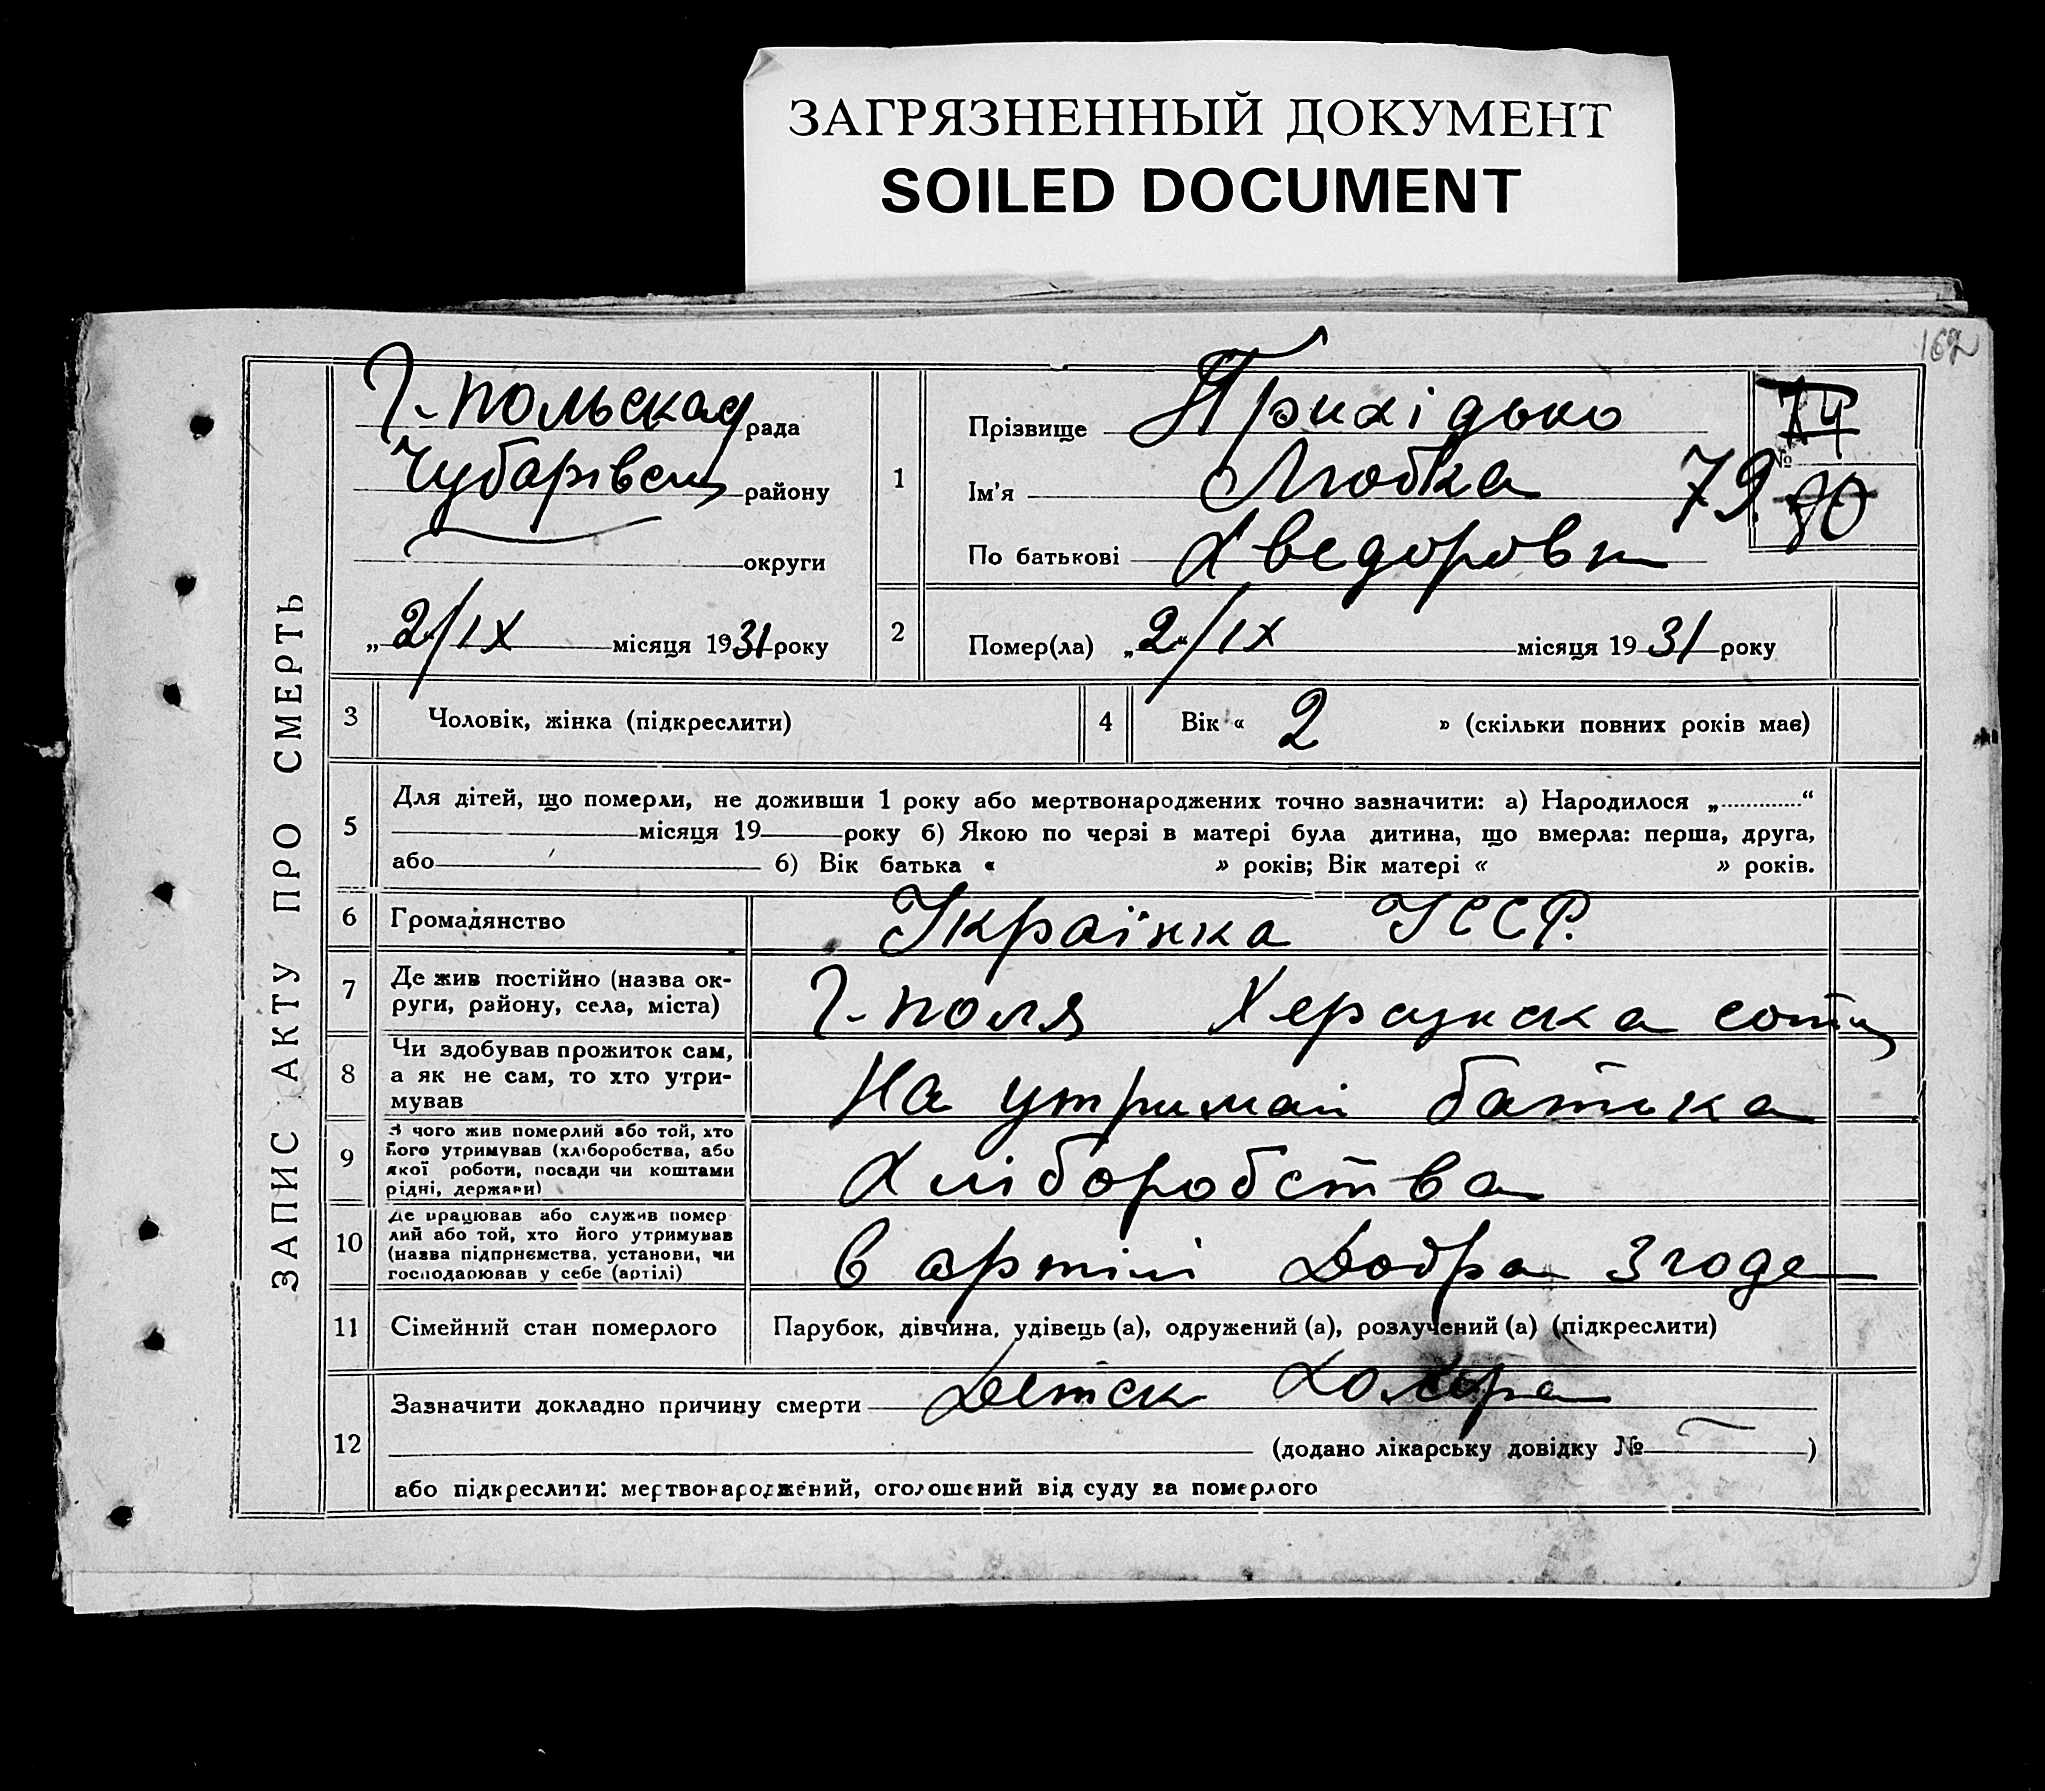 ЗАГРЯЗНЕННЫЙ ДОКУМЕНТ
SOILED DOCUMENT
162
ЗАПИС АКТУ ПРО СМЕРТЬ
Г-польская рада
Чубарівськ району
округи
„2/IX місяця 1931 року
1
Прізвище Прихідько
Ім'я Любка
По батькові Хведоровн
№
79 80
2 Помер(ла) „2“/IX місяця 1931 року
3 Чоловік, жінка (підкреслити)
4 Вік « 2 » (скільки повних років має)
5 Для дітей, що померли, не доживши 1 року або мертвонароджених точно зазначити: а) Народилося „ “
місяця 19 року б) Якою по черзі в матері була дитина, що вмерла: перша, друга,
або 6) Вік батька « » років; Вік матері « » років.
6 Громадянство Українка УССР.
7 Де жив постійно (назва ок-
руги, району, села, міста) Г-поля Херсунска сотн
8 Чи здобував прожиток сам,
а як не сам, то хто утри-
мував На утриман батька
9 З чого жив померлий або той, хто
його утримував (хліборобства, або
якої роботи, посади чи коштами
рідні, держави) Хліборобства
10 Де працював або служив помер
лий або той, хто його утримував
(назва підприємства, установи, чи
господарював у себе (артілі) в артілі Добра Згода
11 Сімейний стан померлого Парубок, дівчина, удівець (а), одружений (а), розлучений (а) (підкреслити)
12 Зазначити докладно причину смерти Детск Холера
(додано лікарську довідку № — )
або підкреслити: мертвонароджений, оголошений від суду за померлого